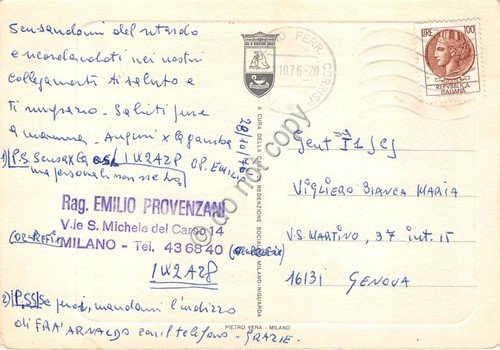 Scusandomi del ritardo
e ricordandoti nei nostri
collegamenti ti saluto e
ti ringrazio. Saluti pure
a mamma. Auguri x la gamba
1) P.S. Scusa la QSL IW2AZ8 OP. EMILIO
ma personali non ne ho
28/10/76
Rag. EMILIO PROVENZANI
V.le S. Michele del Carso 14
MILANO - Tel. 43 68 40
IW2AZ8
2) P.SS) Se puoi, mandami l'indirizzo
di FRA' ARNALDO con il telefono - GRAZIE.
A CURA DELLA
MILANO-NIGUARDA
PIETRO VERA - MILANO
FERR. CORRISP.
.10.76-20
LIRE 100
REPVBBLICA
ITALIANA
Gent I1SCJ
VIGLIERO BIANCA MARIA
V. S. MARTINO, 37 int. 15
16131 GENOVA
do not copy